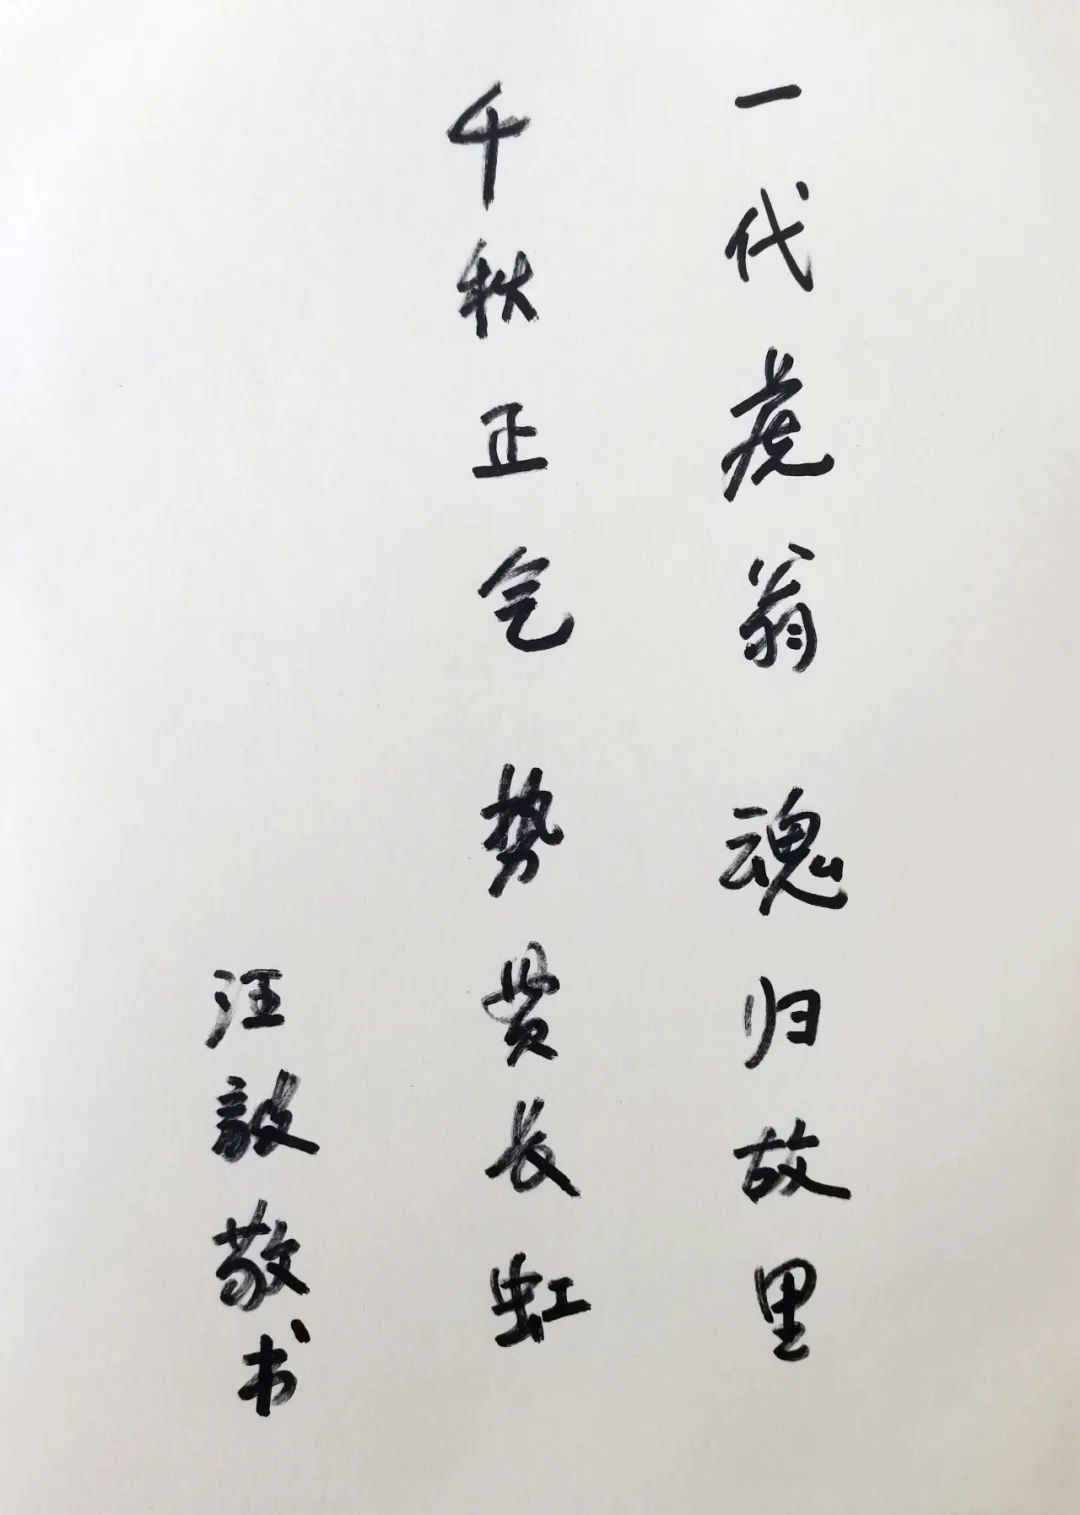 一代虎翁魂归故里
千秋正气势贯长虹
汪毅敬书